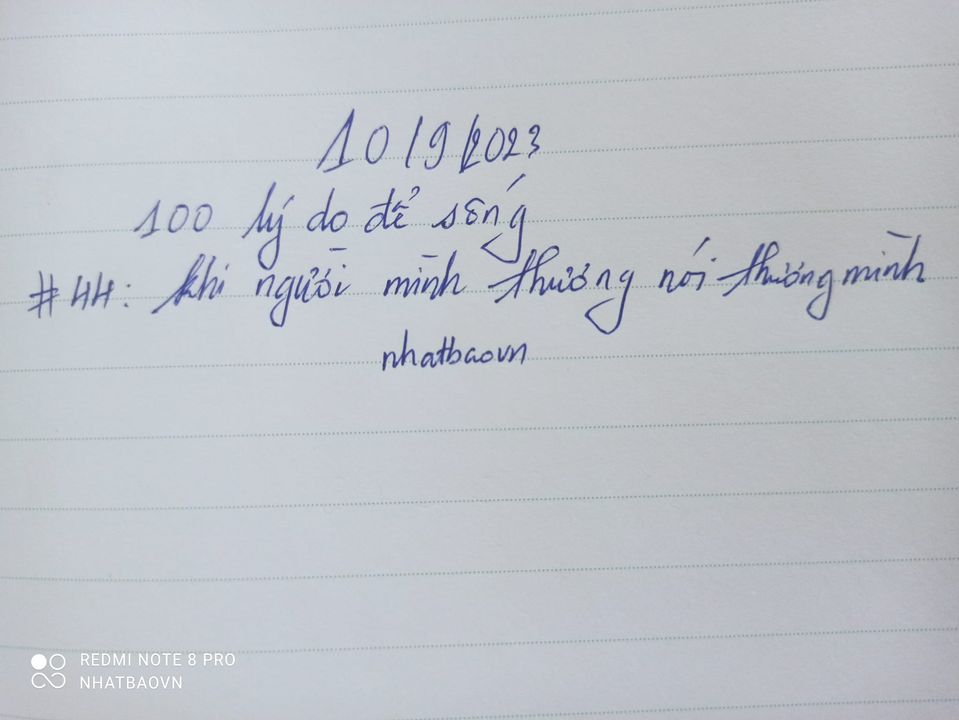 10/9/2023
100 lý do để sống
#44: khi người mình thương nói thương mình
nhatbaovn
REDMI NOTE 8 PRO
NHATBAOVN